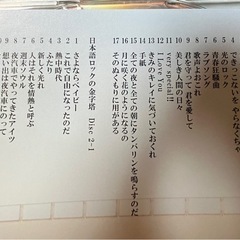 4 できっこないを やらなくちゃ
5
6 青春狂騒曲
7 ラブソング
8
9 君を守って 君を愛して
10 美しき人間の日々
11 very special!!
12 I Love You
13 きみのキレイに気づいておくれ
14 手紙
15 全ての夜と全ての朝にタンバリンを鳴らすのだ
16 月に咲く花のようになるの
17 ぬくもりに用がある
日本語ロックの金字塔 Disc 2-1
1 さよならベイビー
2 これで自由になったのだ
3 熱中時代
4 ふたり
5 新しくれ
6 人はそれを情熱と呼ぶ
7 週末ソウル
8 夜汽車でやってきたアイツ
9 想い出は夜汽車にのって